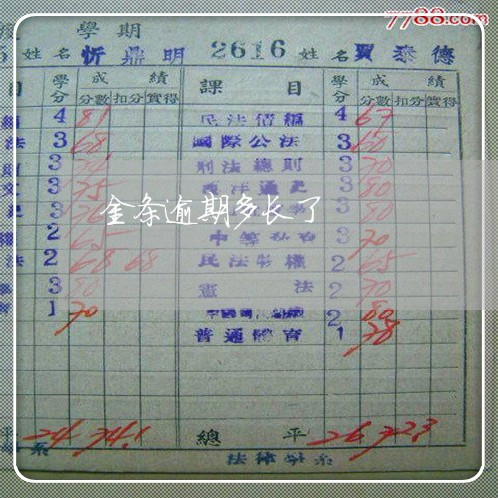 7788.com
學期
姓名 忻鼎明 2616 姓名 賈泰德
目 學分 成績 課目 學分 成績
分數 扣分 實得 分數 扣分 實得
4 81 民法債編 4 67
法 3 68 國際公法 3 60
3 刑法總則 3 70
3 75 3 80
金条逾期多长了
3 3 80
2 65 3 70
法 2 68 68 民法物權 2 65
3 80 憲法 2 70
1 70 2 80
普通體育 1 78
平 24 74.1 總平 26 72.3
系 法律學系